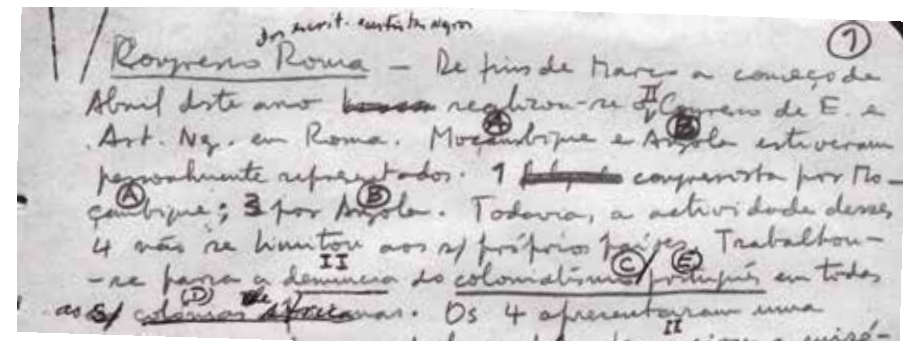 dos escrit. e artistas negros
1
Congresso Roma – De fins de Março a começo de
Abril deste ano realizou-se o II Congresso de E. e
Art. Ng. em Roma. Moçambique (A) e Angola (B) estiveram
pessoalmente representados. 1 congressista por Mo-
çambique (A); 3 por Angola (B). Todavia, a actividade desses
4 não se limitou aos s/ próprios países. Trabalhou-
-se para a denuncia II do colonialismo (C) / português (E) em todas
as s/ colonias (D) africanas. Os 4 apresentaram uma
II